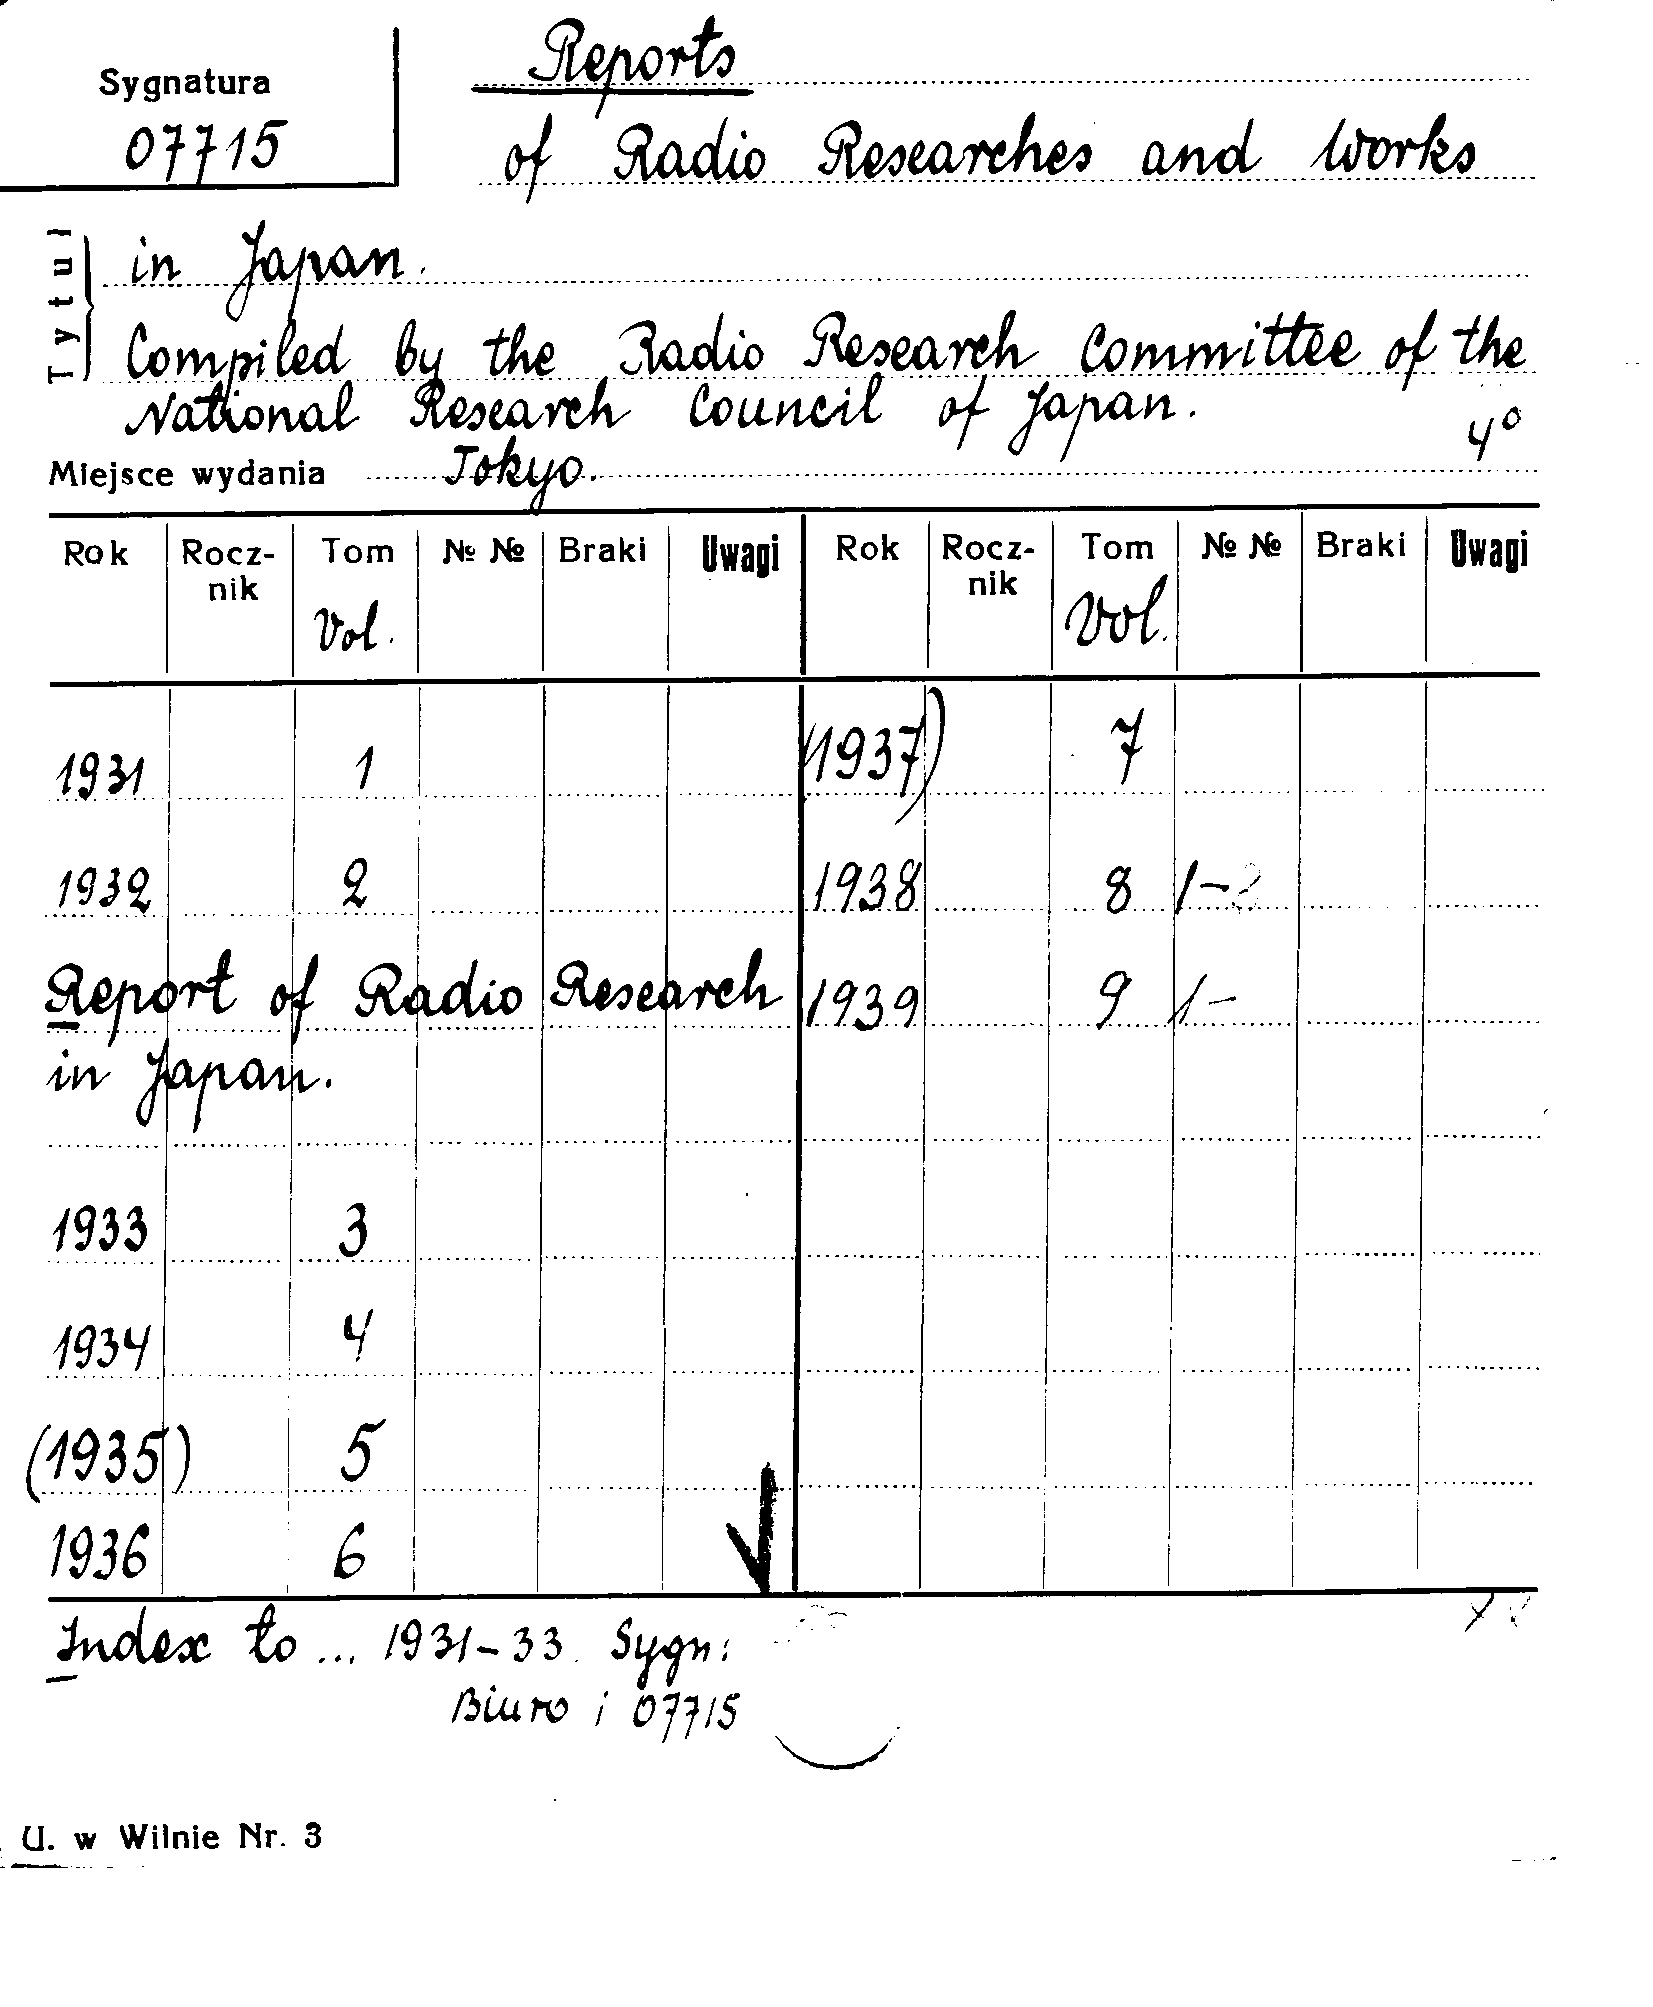 Reports
Sygnatura
07715
of Radio Researches and Works
Tytuł
in Japan.
Compiled by the Radio Research Committee of the
National Research Council of Japan.
4°
Miejsce wydania Tokyo.
Rok Rocz- Tom № № Braki Uwagi Rok Rocz- Tom № № Braki Uwagi
nik nik
Vol. Vol.
1931 1 (1937) 7
1932 2 1938 8 1-2
Report of Radio Research 1939 9 1-
in Japan.
1933 3
1934 4
(1935) 5
1936 6
Index to ... 1931-33. Sygn:
Biuro i 07715
U. w Wilnie Nr. 3